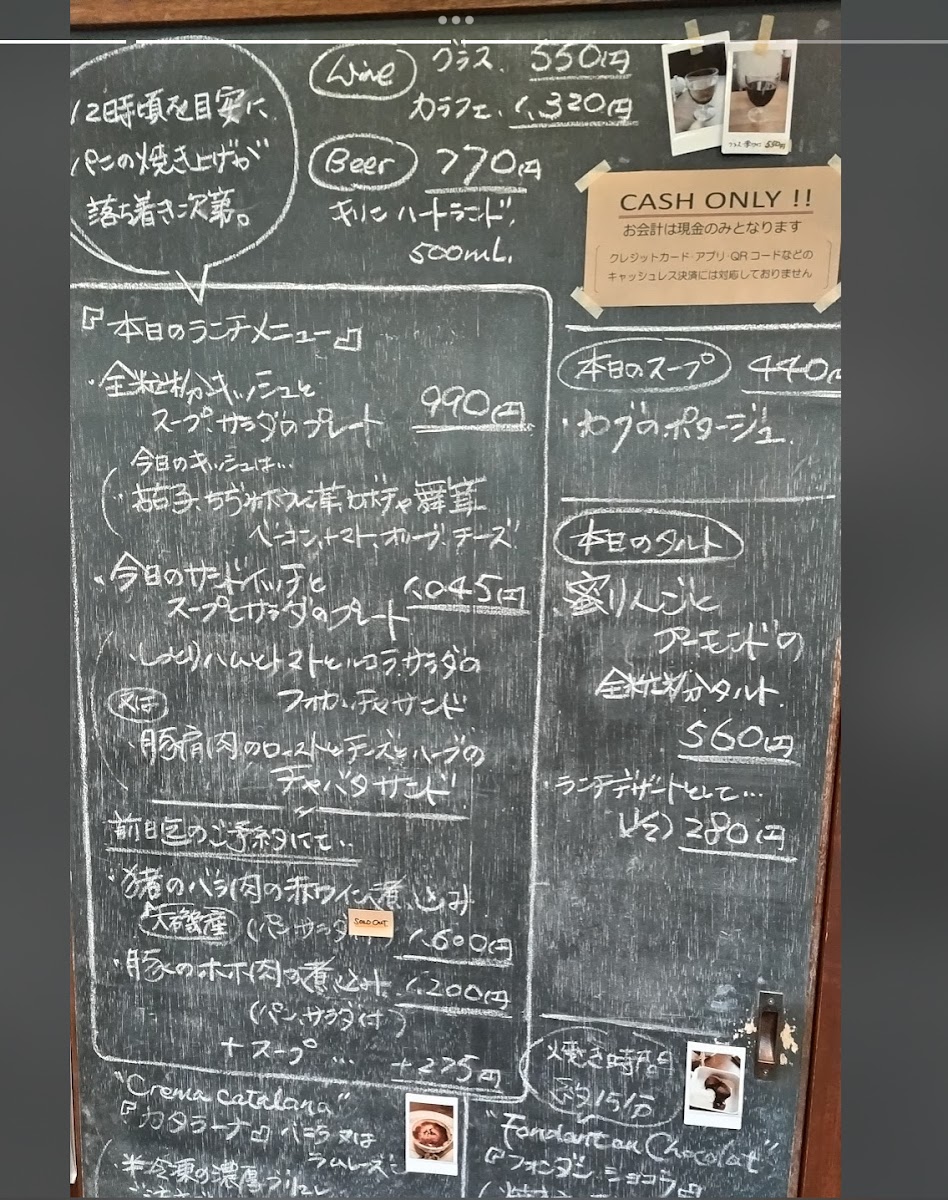 12時頃を目安に
パンの焼き上げが
落ち着き次第。
Wine グラス. 550円
カラフェ. 1,320円
Beer 770円
キリン ハートランド.
500mL.
CASH ONLY !!
お会計は現金のみとなります
クレジットカード・アプリ・QRコードなどの
キャッシュレス決済には対応しておりません
『本日のランチメニュー』
・全粒粉キッシュと
スープ、サラダのプレート 990円
今日のキッシュは…
・茄子、ちぢみホウレン草、カボチャ、舞茸
ベーコン、トマト、オリーブ、チーズ
・今日のサンドイッチと
スープとサラダのプレート 1,045円
・しっとりハムとトマトとルコラサラダの
フォカッチャサンド
又は
・豚肩肉のローストとチーズとハーブの
チャバタサンド
前日迄のご予約にて…
・猪のバラ肉の赤ワイン煮込み
(パン、サラダ
SOLD OUT
1,600円
・豚のホホ肉の煮込み 1,200円
(パン、サラダ付)
+スープ … +275円
本日のスープ 440円
・カブのポタージュ
本日のタルト
蜜りんごと
アーモンドの
全粒粉タルト
560円
・ランチデザートとして…
280円
"Crema catalana"
『カタラーナ』バニラ又は
ラムレーズン
半冷凍の濃厚
焼き時間
約15分
"Fondant au Chocolat"
『フォンダンショコラ』